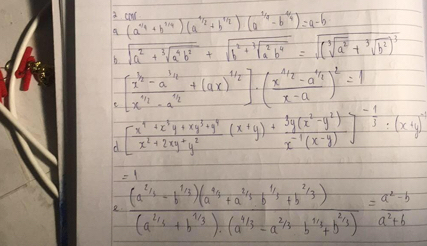 a. (a^{1/4} + b^{1/4}) (a^{1/2} + b^{1/2}) (a^{1/4} - b^{1/4}) = a - b
b. √(a² + ∛(a⁴b²)) + √(b² + ∛(a²b⁴)) = √((∛(a²) + ∛(b²))³)
c. [(x^{3/2} - a^{3/2})/(x^{1/2} - a^{1/2}) + (ax)^{1/2}] · ((x^{1/2} - a^{1/2})/(x - a))² = 1
d. [(x⁴ + x³y + xy³ + y⁴)/(x² + 2xy + y²) (x + y) + 3y(x² - y²)/(x^{-1}(x - y))]^{-1/3} : (x + y)
= 1
e. (a^{2/3} - b^{1/3})(a^{4/3} + a^{2/3} b^{1/3} + b^{2/3}) / (a^{2/3} + b^{1/3}) · (a^{4/3} - a^{2/3} b^{1/3} + b^{2/3}) = (a² - b)/(a² + b)